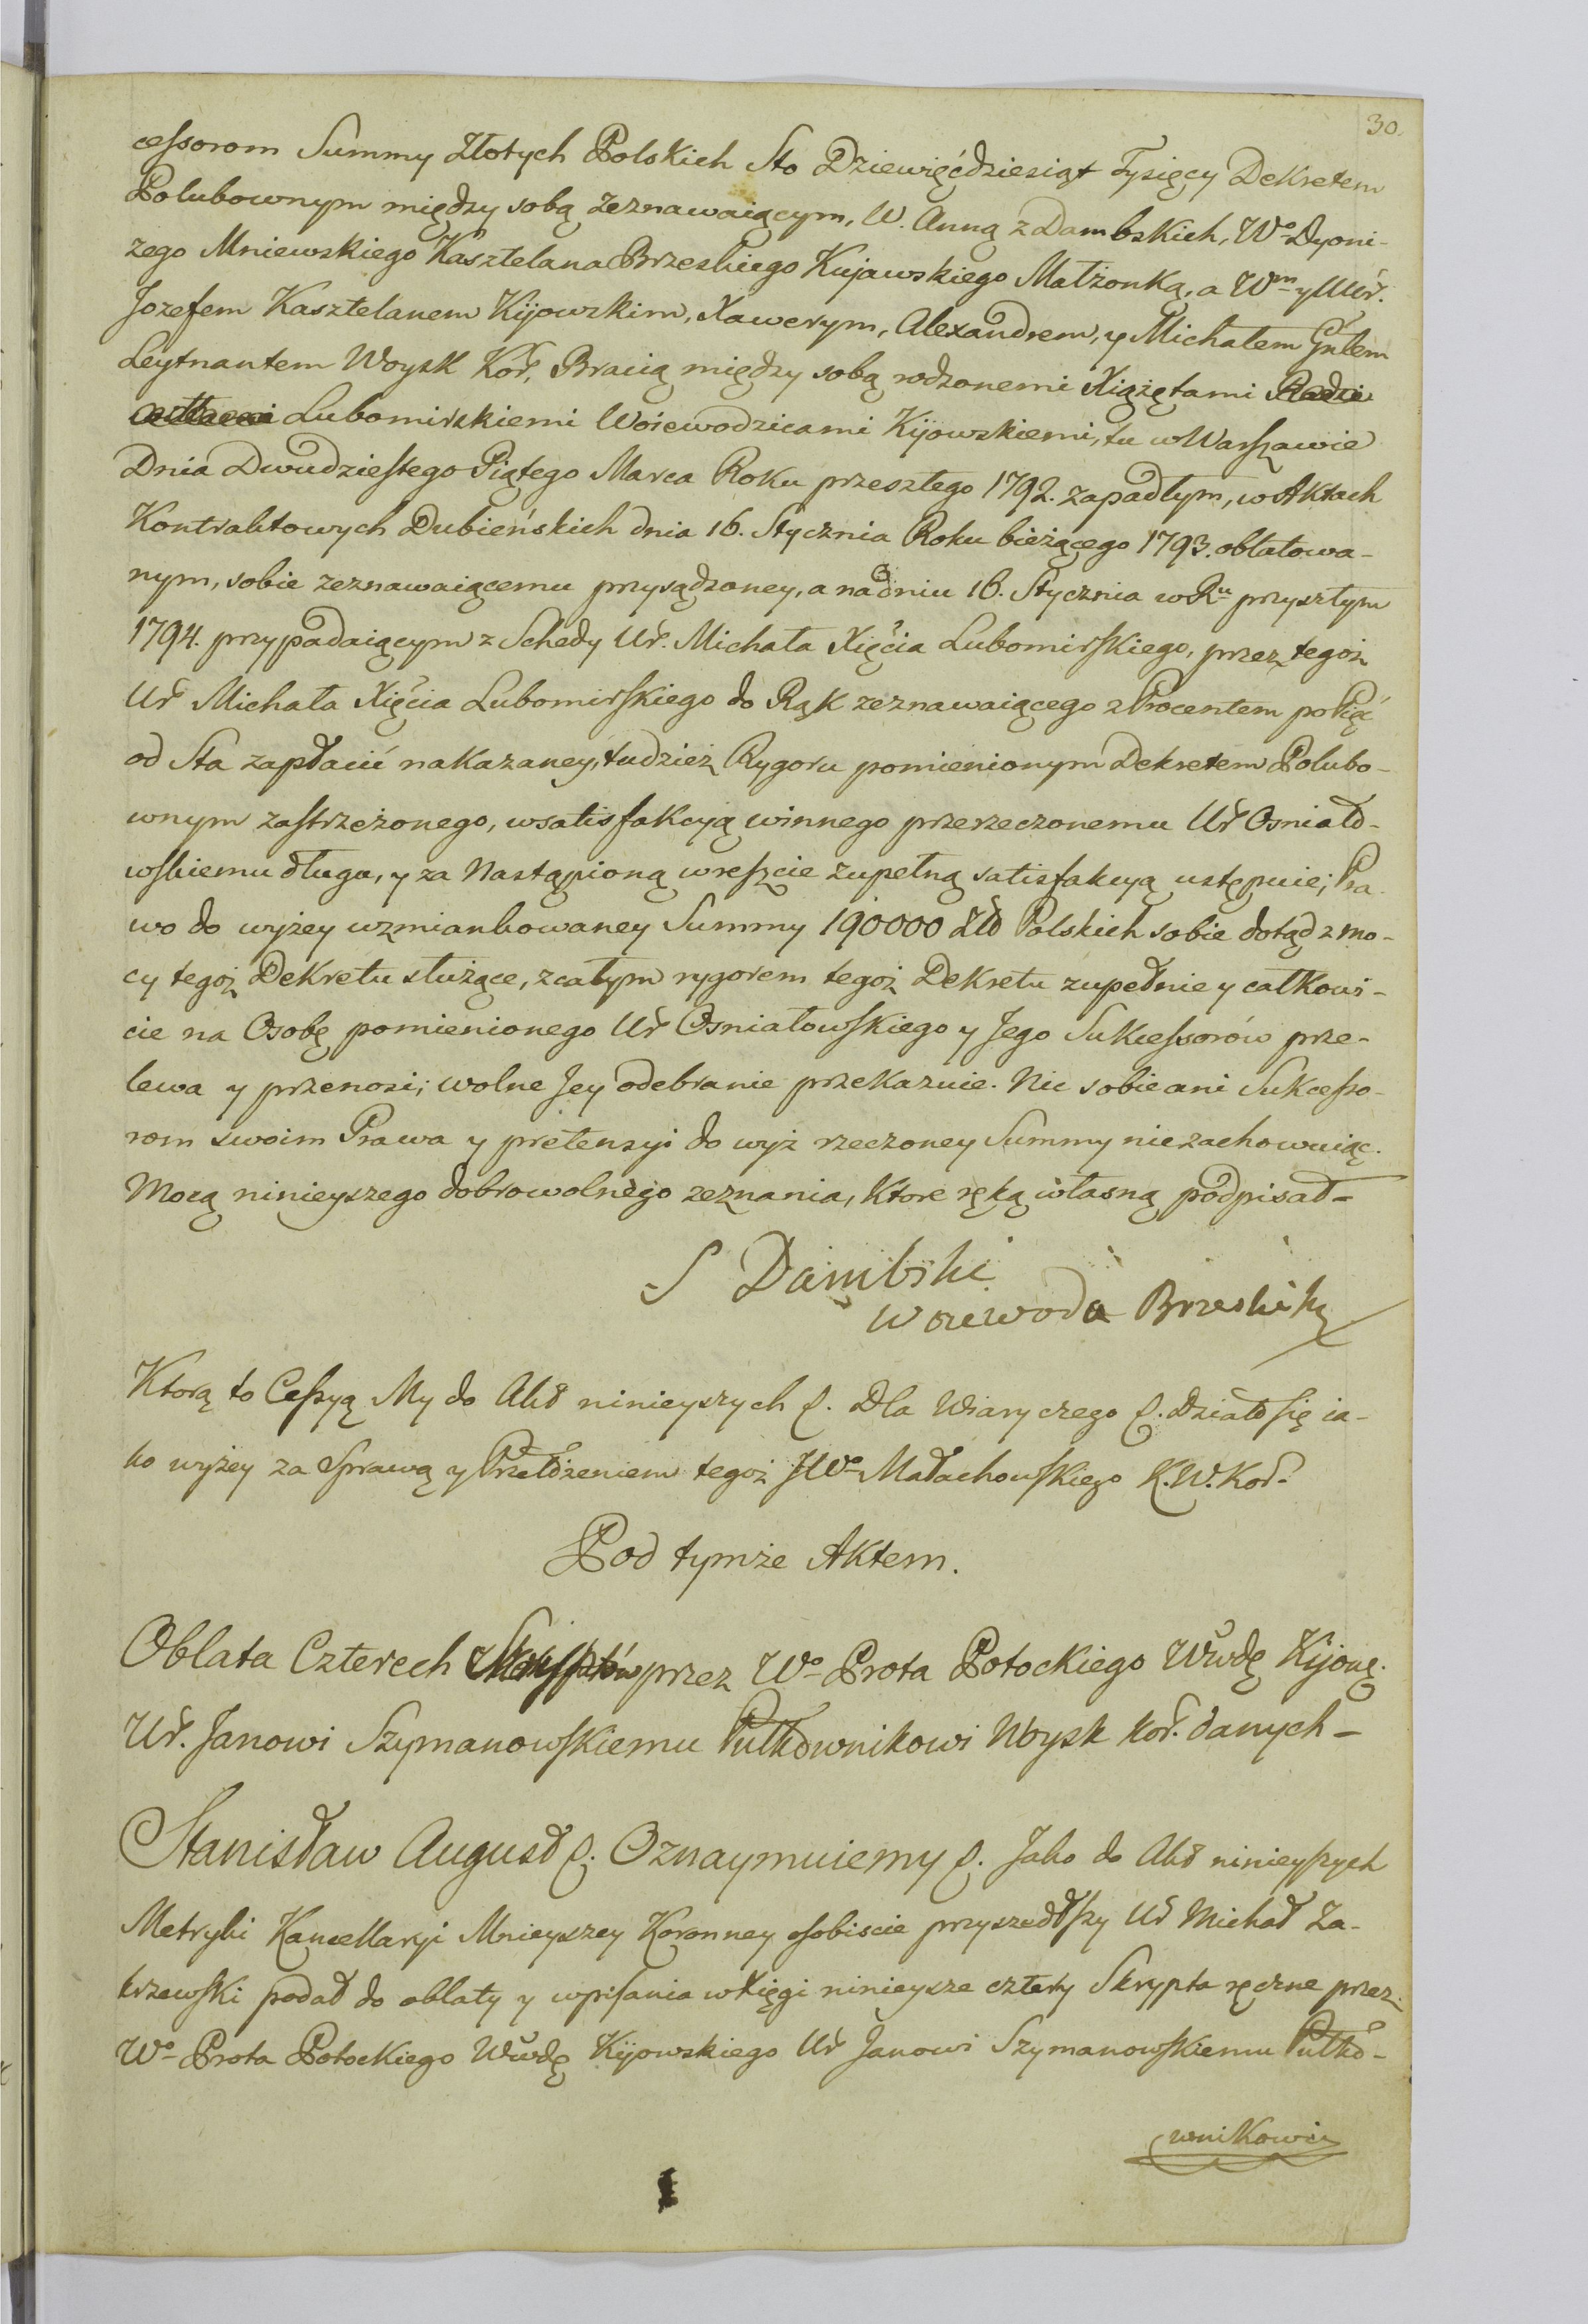 30.
cessorom Summy Złotych Polskich Sto Dziewięćdziesiąt Tysięcy Dekretem
Polubownym między sobą zeznawaiącym, W. Anną z Dambskich, Wo Dyoni-
zego Mniewskiego Kasztelana Brzeskiego Kujawskiego Małżonką, a Wm y Ur.
Jozefem Kasztelanem Kijowskim, Xawerym, Alexandrem, y Michałem Gnłem
Leytnantem Woysk Kor. Bracią między sobą rodzonemi Xiążętami
Lubomirskiemi Woiewodzicami Kijowskiemi, tu w Warszawie
Dnia Dwudziestego Piątego Marca Roku przeszłego 1792. zapadłym, w Aktach
Kontraktowych Dubieńskich dnia 16. Stycznia Roku bieżącego 1793. oblatowa-
nym, sobie zeznawaiącemu przysądzoney, a na dniu 16. Stycznia w Ru przyszłym
1794. przypadaiącym z Schedy Ur. Michała Xięcia Lubomirskiego, przez tegoż
Ur Michała Xięcia Lubomirskiego do Rąk zeznawaiącego z Procentem po Pięć
od Sta zapłacić nakazaney, tudzież Rygoru pomienionym Dekretem Polubo-
wnym zastrzeżonego, w satisfakcyą winnego przerzeczonemu Ur Osniało-
wskiemu długu, y za Nastąpioną wreszcie zupełną satisfakcyą ustępuie; Pra-
wo do wyżey wzmiankowaney Summy 190000 Zło Polskich sobie dotąd z mo-
cy tegoż Dekretu służące, z całym rygorem tegoż Dekretu zupełnie y całkowi-
cie na Osobę pomienionego Ur Osniałowskiego y Jego Sukcessorów prze-
lewa y przenosi; wolne Jey odebranie przekazuie. Nic sobie ani Sukcesso-
rom swoim Prawa y pretensyi do wyż rzeczoney Summy niezachowuiąc.
Mocą ninieyszego dobrowolnego zeznania, Ktore ręką własną podpisał-
S Dambski
Woiewoda Brzeski Kuj
Ktorą to Cessyą My do Akt ninieyszych &. Dla Wiary czego &. Działo się ia-
ko wyżey za Sprawą y Przełożeniem tegoż JWo Małachowskiego K. W. Kor.
Pod tymże Aktem.
Oblata Czterech Skryptów przez Wo Prota Potockiego Wwdę Kijowę.
Ur. Janowi Szymanowskiemu Pułkownikowi Woysk Kor. danych-
Stanisław August &. Oznaymuiemy &. Jako do Akt ninieyszych
Metryki Kancellaryi Mnieyszey Koronney osobiscie przyszedłszy Ur Michał Za-
krzewski podał do oblaty y wpisania w Xięgi ninieysze cztery Skrypta ręczne przez
Wo Prota Potockiego Wwdę Kijowskiego Ur Janowi Szymanowskiemu Pułko-
wnikowi